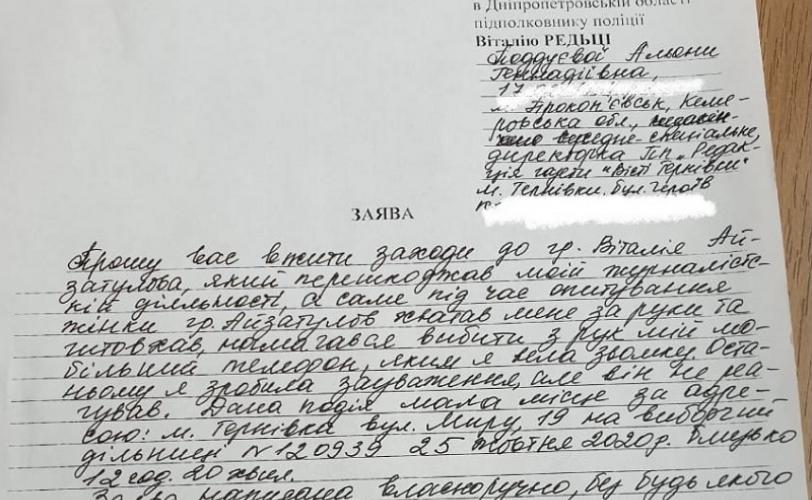 в Дніпропетровській області
підполковнику поліції
Віталію РЕДЬЦІ
Поддуєвої Альони
Геннадіївна,
17
м. Прокоп'євськ, Кеме-
ровська обл.,
середнє-спеціальне,
директорка Пп „Редак-
ція газети "Вісті Тернівки"
м. Тернівки. бул. Героїв
ЗАЯВА
Прошу вас вжити заходи до гр. Віталія Ай-
затулова, який перешкоджав моїй журналістс-
кій діяльності, а саме під час опитування
жінки гр. Айзатулов хватав мене за руки та
штовхав, намагався вибити з рук мій мо-
більний телефон, яким я вела зйомку. Оста-
ньому я зробила зауваження, але він не реа-
гував. Дана подія мала місце за адре-
сою: м. Тернівка вул. Миру, 19 на виборчий
дільниці №120939 25 жовтня 2020р. близько
12 год. 20 хвил.
Заява написана власноручно, без будь якого